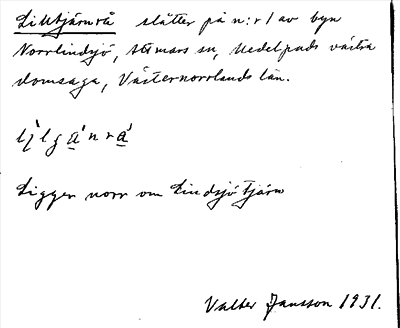 Lilltjärnrå slåtter på n:r 1 av byn
Norrlindsjö, Attmars sn, Medelpads västra
domsaga, Västernorrlands län.
Ligger norr om Lindsjötjärn
Valter Jansson 1931.